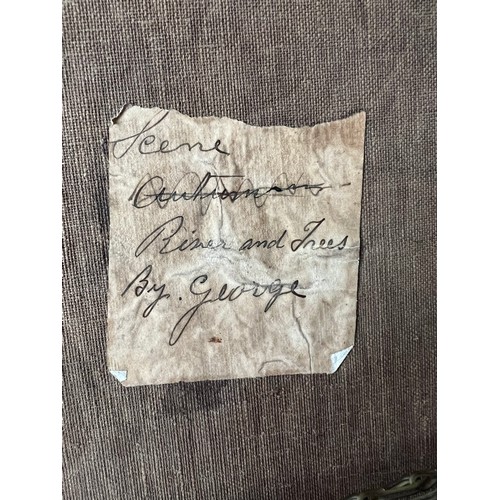 Scene
River and Trees
By. George